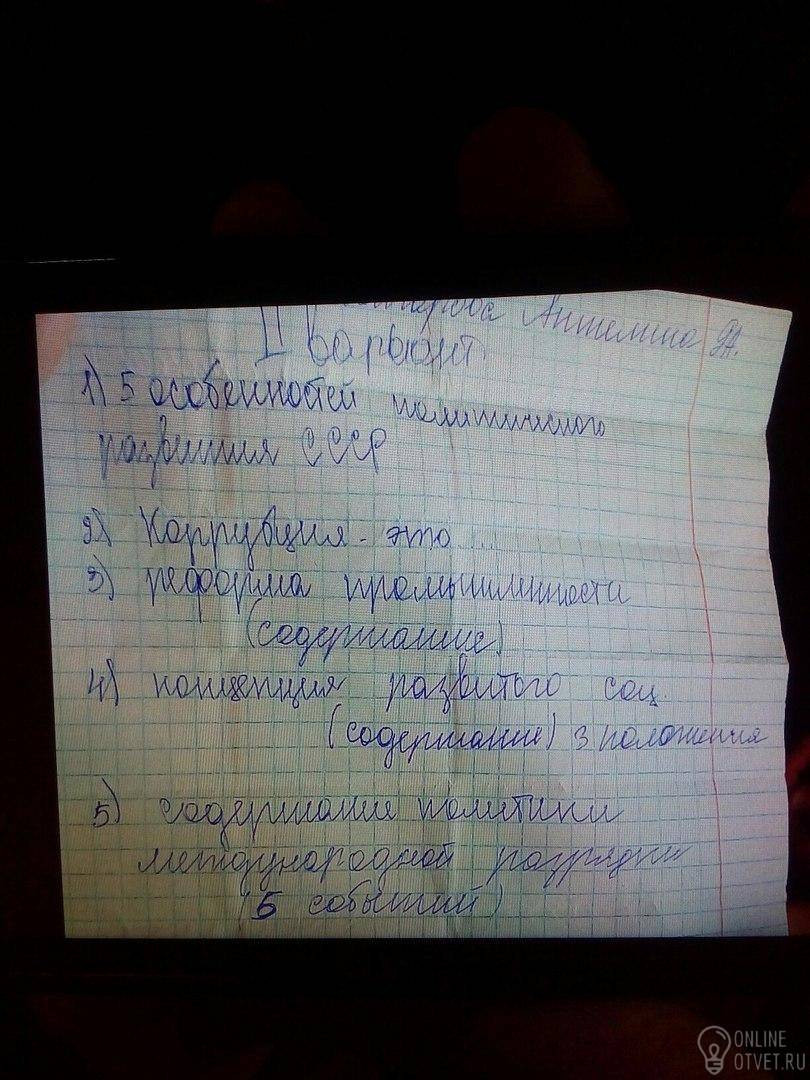 Ангелина 9А.
II вариант
1) 5 особенностей политического
развития СССР
2) Коррупция - это ...
3) реформа промышленности
(содержание)
4) концепция развитого соц.
(содержание) 3 положения
5) содержание политики
международной разрядки
(5 событий)
ONLINE
OTVET.RU